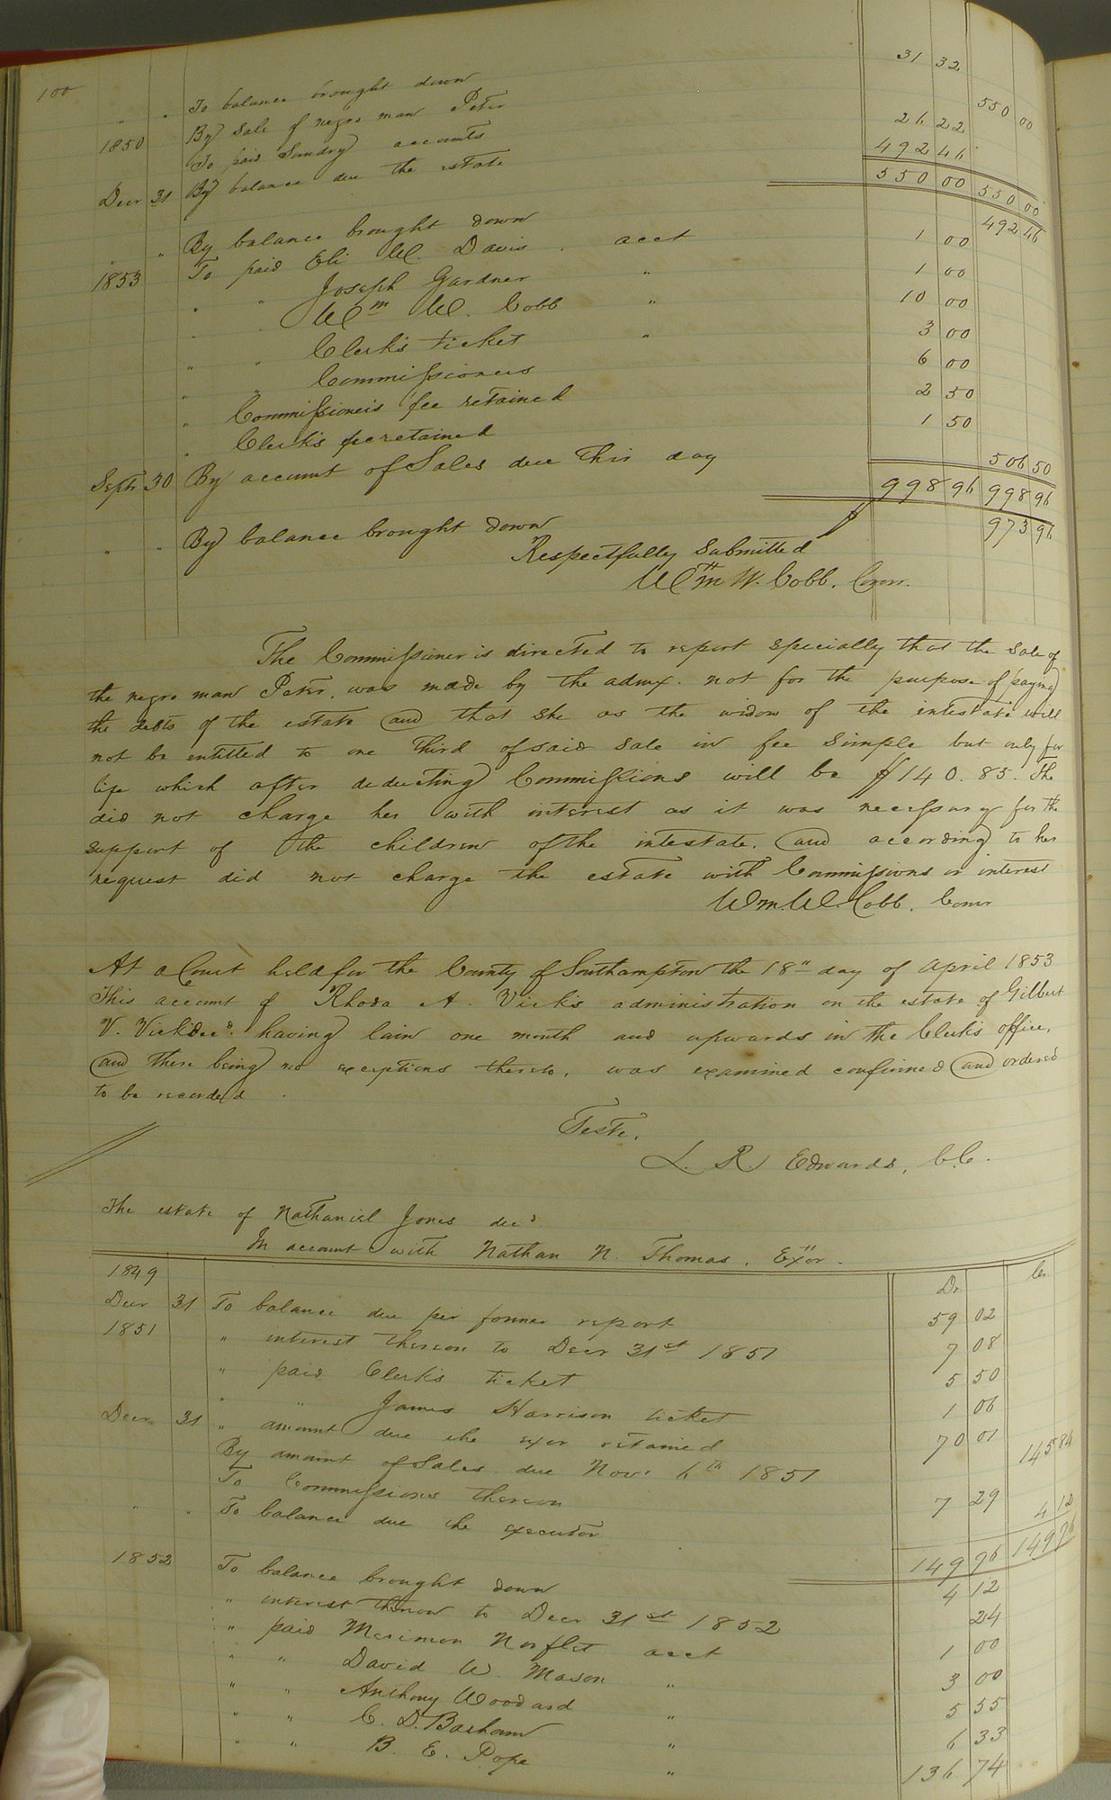 100
" " To balance brought down 31 32
1850 By Sale of negro man Peter 550 00
To paid Sundry accounts 26 22
Decr 31 By balance due the estate 492 46
550 00 550 00
" " By balance brought down 492 46
1853 To paid Eli W. Davis acct 1 00
" " Joseph Gardner " 1 00
" " Wm W. Cobb " 10 00
" " Clerk's ticket " 3 00
" " Commissioners 6 00
" Commissioneis fee retained 2 50
" Clerk's fee retained 1 50
Septr 30 By account of Sales due this day 506 50
998 96 998 96
" " By balance brought down 973 96
Respectfully Submitted
Wm W. Cobb. Comr.
The Commissioner is directed to report specially that the Sale of
the negro man Peter, was made by the admx. not for the purpose of paying
the debts of the estate and that she as the widow of the intestate will
not be entitled to one third of said sale in fee simple but only for
life which after deducting Commissions will be $140.85. The
did not charge her with interest as it was necessary for the
support of the children of the intestate. and according to her
request did not charge the estate with Commissions or interest
Wm. W. Cobb. Comr
At a Court held for the County of Southampton the 18" day of April 1853
This account of Rhoda A. Vick's administration on the estate of Gilbert
V. Vick decd. having lain one month and upwards in the Clerk's office,
and there being no exceptions thereto, was examined confirmed and ordered
to be recorded.
Teste.
L. R. Edwards, C.C.
The estate of Nathaniel Jones decd
In account with Nathan N. Thomas, Exor.
1849 Dr. Cr.
Decr 31 To balance due per former report 59 02
1851 " interest thereon to Decr 31st 1851 7 08
" paid Clerk's ticket 5 50
" " James Harrison ticket 1 06
Decr 31 " amount due the exor retained 70 01
By amount of Sales due Novr 6th 1851 145 84
To Commissions thereon 7 29
" " To balance due the executor 4 12
149 96 149 96
1852 To balance brought down 4 12
" interest thereon to Decr 31st 1852 24
" paid Merimon Norflet acct 1 00
" " David W. Mason " 3 00
" " Anthony Woodard " 5 55
" " C. D. Barham " 6 33
" " B. E. Pope " 136 74